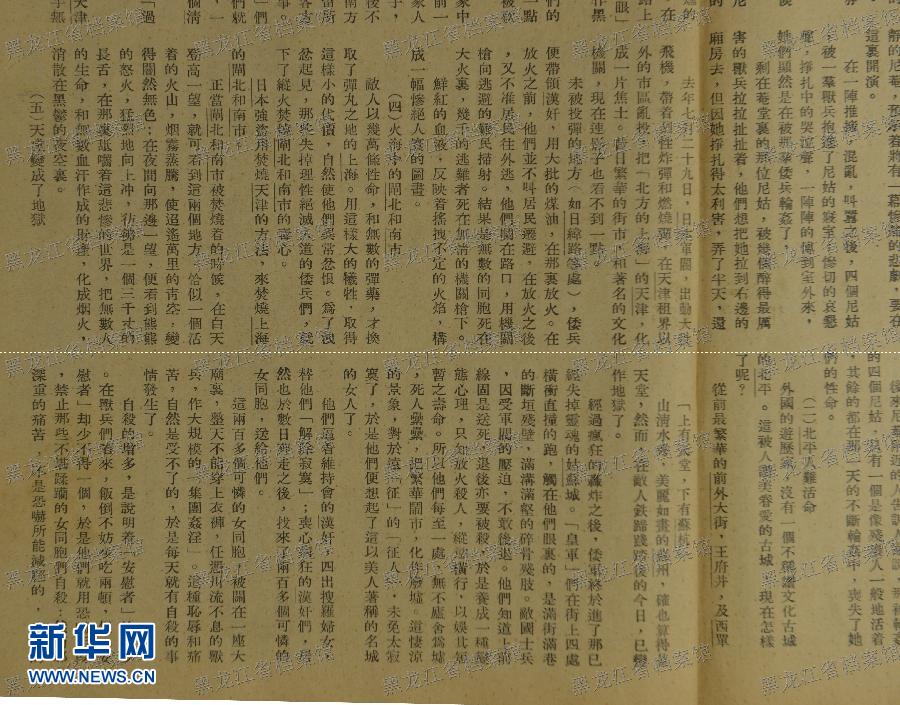 靜的尼庵，預示着將有一幕慘絕的悲劇，要在
這裏開演。
在一陣推搡，混亂，叫囂之後，四個尼姑
有被一羣獸兵抱進了尼姑的寢室，慘切的哀懇
聲，掙扎中的哭泣聲，一陣陣的傳到室外來，
她們顯然是在被那羣倭兵輪姦了。
剩在菴堂裏的那位尼姑，被幾個醉得最厲
害的獸兵拉拉扯扯着，他們想把她拉到右邊的
廂房去，但因她掙扎得太利害，弄了半天，還
去年七月二十九日，日本軍閥，出動大批
飛機，帶着烈性炸彈和燃燒彈，在天津租界以
外的市區亂投，把「北方的上海」的天津，化
成一片焦土。昔日繁華的街市，和著名的文化
機關，現在連影子也看不到一點。
未被投彈的地方（如日緯路等處），倭兵
便帶領漢奸，用大批的煤油，在那裏放火。在
放火之前，他們並不叫居民遷避，在放火之後
，又不准居民往外逃，他們攔在路口，用機關
槍向逃避的難民掃射。結果是無數的同胞死在
大火裏，幾千的逃難者死在無情的機關槍下。
鮮紅的血液，反映着搖拽不定的火焰，構
成一幅慘絕人寰的圖畫。
（四）火海中的閘北和南市
敵人以幾萬條性命，和無數的彈藥，才換
取了彈丸之地的上海。用這樣大的犧牲，取得
這樣小的代價，自然使他們異常忿恨。爲了洩
忿起見，那些失掉理性絕滅人道的倭兵們，就
下了縱火焚燒閘北和南市的毒心。
日本強盜用焚燒天津的方法，來焚燒上海
的閘北和南市。
正當閘北和南市被焚燒着的時候，在白天
登高一望，就可看到這兩個地方，恰似一個活
着的火山，烟霧蒸騰，使迢遙萬里的青空，變
得闇然無色；在夜間向那邊一望，便看到熊熊
的怒火，狂烈地向上冲，彷彿是一個三千丈的
長舌，在那裏舐嚐着這悲慘的世界，把無數人
的生命，和無數血汗作成的財產，化成烟火，
消散在黑鬱的夜空裏。
（五）天堂變成了地獄
的四個尼姑，只有一個是像殘廢人一般地活着
，其餘的都在那一天的不斷輪姦中，喪失了她
們的性命。
（二）北平人難活命
外國的遊歷家，沒有一個不稱讚文化古城
的北平。這被人讚美眷愛的古城，現在怎樣
了呢？
從前最繁華的前外大街，王府井，及西單
「上有天堂，下有蘇杭」
山清水秀，美麗如畫的蘇州，確也算得是
天堂，然而，在敵人鉄蹄踐踏後的今日，已變
作地獄了。
經過瘋狂的轟炸之後，倭軍終於進了那已
經失掉靈魂的姑蘇城。「皇軍」們在街上四處
橫衝直撞的跑，觸在他們眼裏的，是滿街滿巷
的斷垣殘壁，滿溝滿壑的碎骨殘肢。敵國士兵
，因受軍閥的壓迫，不敢後退。他們知道上前
線固是送死，退後亦要被殺，於是養成一種變
態心理，只知放火殺人，縱淫橫行，以娛其短
暫之壽命。所以他們每至一處，無不廬舍爲墟
，死人纍纍，把繁華鬧市，化作廢墟。這悽涼
的景象，對於遠「征」的「征人」，未免太寂
寞了，於是他們便想起了這以美人著稱的名城
的女人了。
他們逼着維持會的漢奸，四出搜羅婦女，
替他們「解除寂寞」；喪心病狂的漢奸們，居
然也於數日奔走之後，找來了兩百多個可憐的
女同胞，送給他們。
這兩百多個可憐的女同胞，被關在一座大
廟裏，墮天不能穿上衣褲，任憑川流不息的獸
兵，作大規模的「集團姦淫」。這種恥辱和痛
苦，自然是受不了的，於是每天就有自殺的事
情發生了。
自殺的增多，是說明着「安慰者」的減少
。在獸兵們看來，飯倒不妨少吃兩頓，「安
慰者」却少不得一個，於是他們就用恐嚇
，禁止那些不堪蹂躪的女同胞們自殺；
深重的痛苦，不是恐嚇所能減輕的，
新华网
WWW.NEWS.CN
黑龙江省档案馆